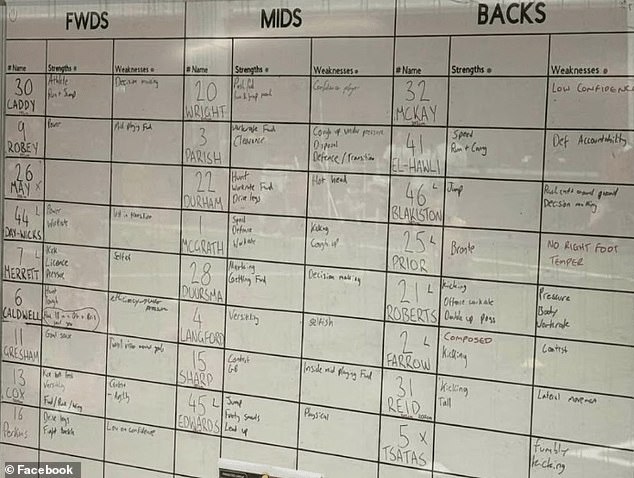 FWDS
MIDS
BACKS
# Name
Strengths
Weaknesses
# Name
Strengths
Weaknesses
# Name
Strengths
Weaknesses
30
CADDY
Athlete
Run + Jump
Decision making
9
ROBEY
Power
Mid playing Fwd
26
MAY X
44 L
DAY-WICKS
Power
Workrate
7 L
MERRETT
Kick
Licence
Pressure
Selfish
6
CALDWELL
Hunt
Tough
efficiency under
pressure
11
GRESHAM
Goal sense
13
COX
Versatility
Fwd/Ruc/Wing
Contest
- Agility
16
Perkins
Drive legs
Fight tackle
Low on confidence
20
WRIGHT
Confidence player
3
PARISH
Workrate Fwd
Clearance
Cough up under pressure
Disposal
Defence/Transition
22
DURHAM
Hunt
Workrate Fwd
Drive legs
Hot head
1
MCGRATH
Spoil
Defence
Workrate
Kicking
Cough up
28
DUURSMA
Marking
Getting Fwd
Decision making
4
LANGFORD
Versatility
Selfish
15
SHARP
Contest
GB
Inside mid playing Fwd
45 L
EDWARDS
Jump
Footy smarts
Lead up
Physical
32
MCKAY
LOW CONFIDENCE
41
EL-HAWLI
Speed
Run + Carry
Def Accountability
46 L
BLAKISTON
Jump
Decision making
25 L
PRIOR
Bronte
NO RIGHT FOOT
TEMPER
21 L
ROBERTS
Kicking
Offence workrate
Double up plays
Pressure
Body
Workrate
2 L
FARROW
COMPOSED
Kicking
Contest
31
REID
Kicking
Tall
Lateral movement
5 X
TSATAS
fumbly
kicking
© Facebook